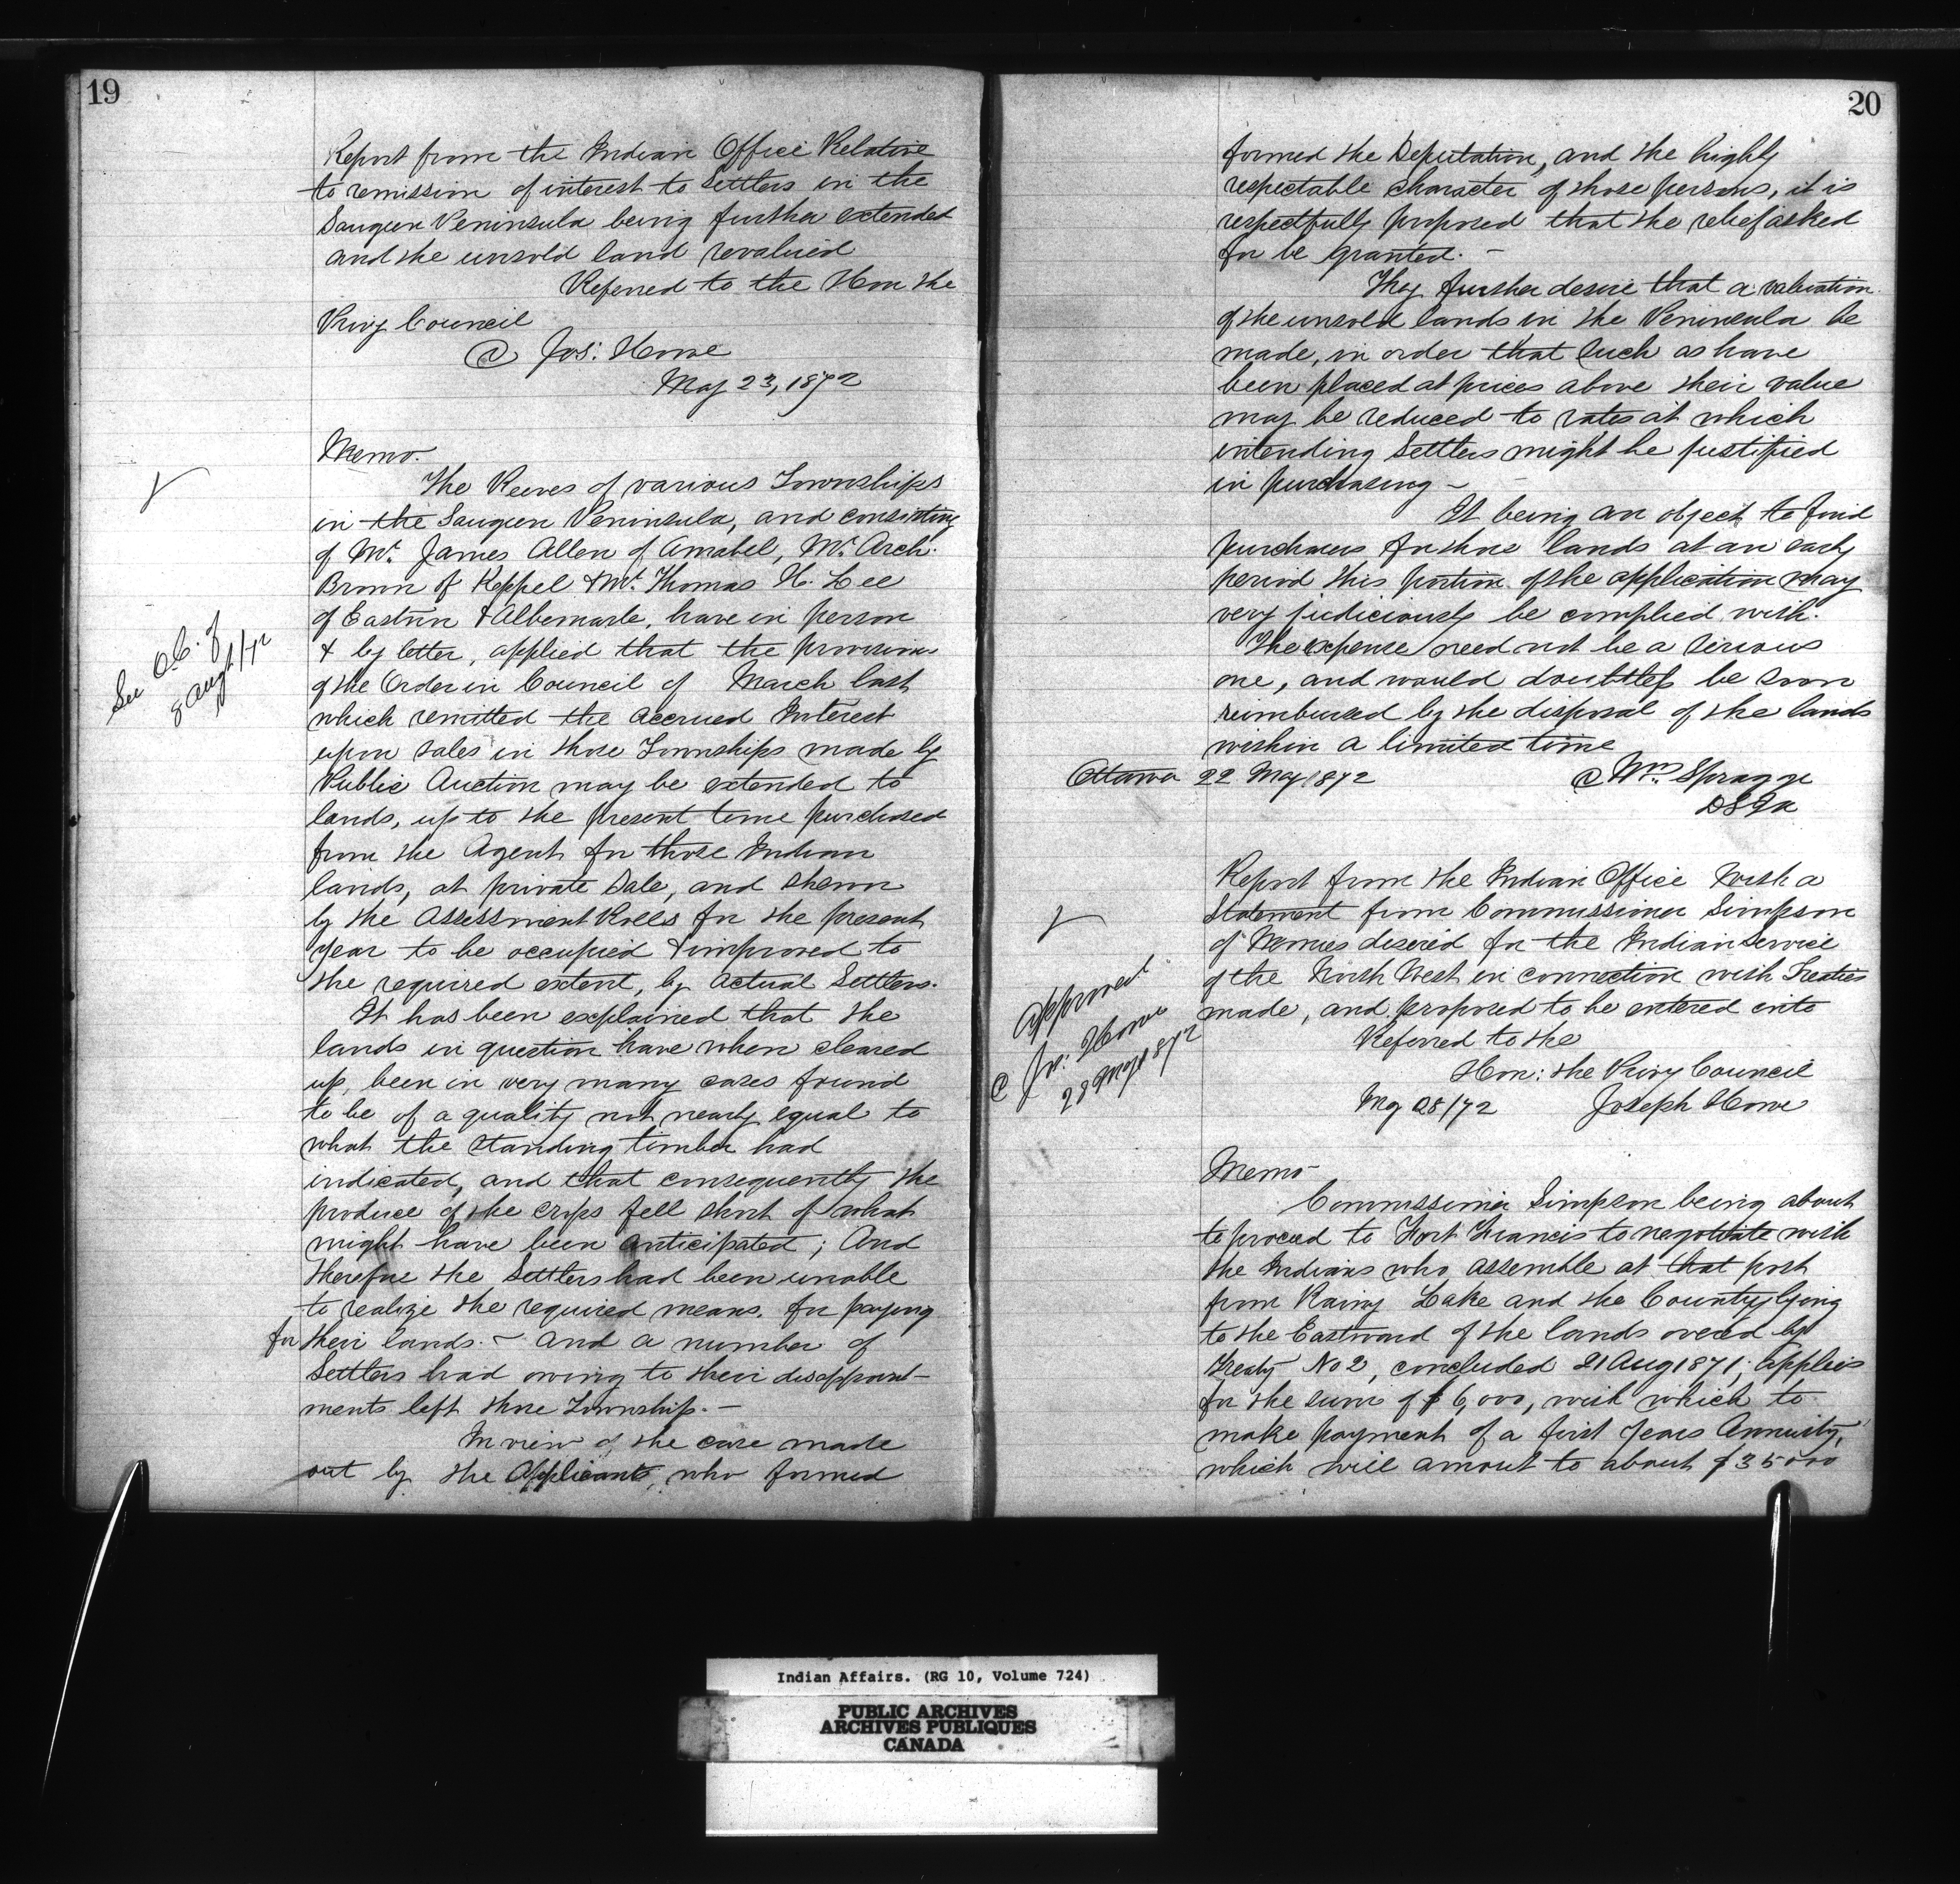 19
Report from the Indian Office Relative
to remission of interest to Settlers in the
Saugeen Peninsula being further extended
and the unsold land revalued
Referred to the Hon the
Privy Council
Jos: Howe
May 23, 1872
Memo.
The Reeves of various Townships
in the Saugeen Peninsula, and consisting
of Mr. James Allen of Amabel, Mr. Arch.
Brown of Keppel & Mr. Thomas H. Lee
of Eastnor & Albemarle, have in person
& by letter, applied that the provision
of the Order in Council of March last
which remitted the accrued Interest
upon sales in those Townships made by
Public Auction may be extended to
lands, up to the present time purchased
from the Agent for those Indian
lands, at private Sale, and shewn
by the Assessment Rolls for the present
year to be occupied & improved to
the required extent, by actual Settlers.
It has been explained that the
lands in question have when cleared
up, been in very many cases found
to be of a quality not nearly equal to
what the standing timber had
indicated, and that consequently the
produce of the crops fell short of what
might have been anticipated; And
therefore the Settlers had been unable
to realize the required means. for paying
for their lands. - and a number of
Settlers had owing to their disappoint-
ments left those Township. -
In view of the case made
out by the Applicants, who formed
See O.C. of
8 Aug/72
20
formed the Deputation, and the highly
respectable character of those persons, it is
respectfully proposed that the relief asked
for be granted. -
They further desire that a valuation
of the unsold lands in the Peninsula be
made, in order that such as have
been placed at prices above their value
may be reduced to rates at which
intending Settlers might be justified
in purchasing -
It being an object to find
purchasers for those lands at an early
period this portion of the application may
very judiciously be complied with.
The expense need not be a serious
one, and would doubtless be soon
reimbursed by the disposal of the lands
within a limited time
Ottawa 22 May 1872 Wm. Spragge
DSIA
Report from the Indian Office with a
Statement from Commissioner Simpson
of Monies desired for the Indian Service
of the North West in connection with Treaties
made, and proposed to be entered into
Referred to the
Hon: the Privy Council
My 28/72 Joseph Howe
Approved
Jos: Howe
28 May 1872
Memo
Commissioner Simpson being about
to proceed to Fort Francis to negotiate with
the Indians who assemble at that post
from Rainy Lake and the Country lying
to the Eastward of the lands overed by
Treaty No 2, concluded 21 Aug 1871, applies
for the sum of $6,000, with which to
make payment of a first years Annuity,
which will amount to about $35000
Indian Affairs. (RG 10, Volume 724)
PUBLIC ARCHIVES
ARCHIVES PUBLIQUES
CANADA